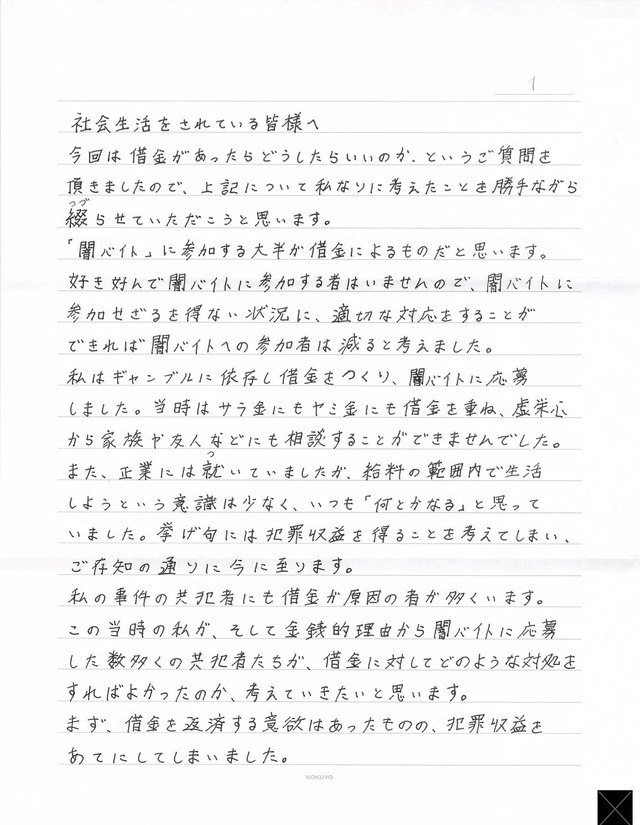 1
社会生活をされている皆様へ
今回は借金があったらどうしたらいいのか、というご質問を
頂きましたので、上記について私なりに考えたことを勝手ながら
つづ
綴らせていただこうと思います。
「闇バイト」に参加する大半が借金によるものだと思います。
好き好んで闇バイトに参加する者はいませんので、闇バイトに
参加せざるを得ない状況に、適切な対応をすることが
できれば闇バイトへの参加者は減ると考えました。
私はギャンブルに依存し借金をつくり、闇バイトに応募
しました。当時はサラ金にもヤミ金にも借金を重ね、虚栄心
から家族や友人などにも相談することができませんでした。
つ
また、正業には就いていましたが、給料の範囲内で生活
しようという意識は少なく、いつも「何とかなる」と思って
いました。挙げ句には犯罪収益を得ることを考えてしまい、
ご存知の通りに今に至ります。
私の事件の共犯者にも借金が原因の者が多くいます。
この当時の私が、そして金銭的理由から闇バイトに応募
した数多くの共犯者たちが、借金に対してどのような対処を
すればよかったのか、考えていきたいと思います。
まず、借金を返済する意欲はあったものの、犯罪収益を
あてにしてしまいました。
KOKUYO